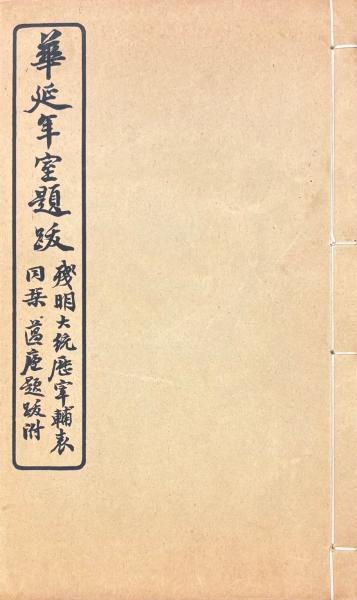 華延年室題跋
殘明大統歷宰輔表
同栞 題跋附